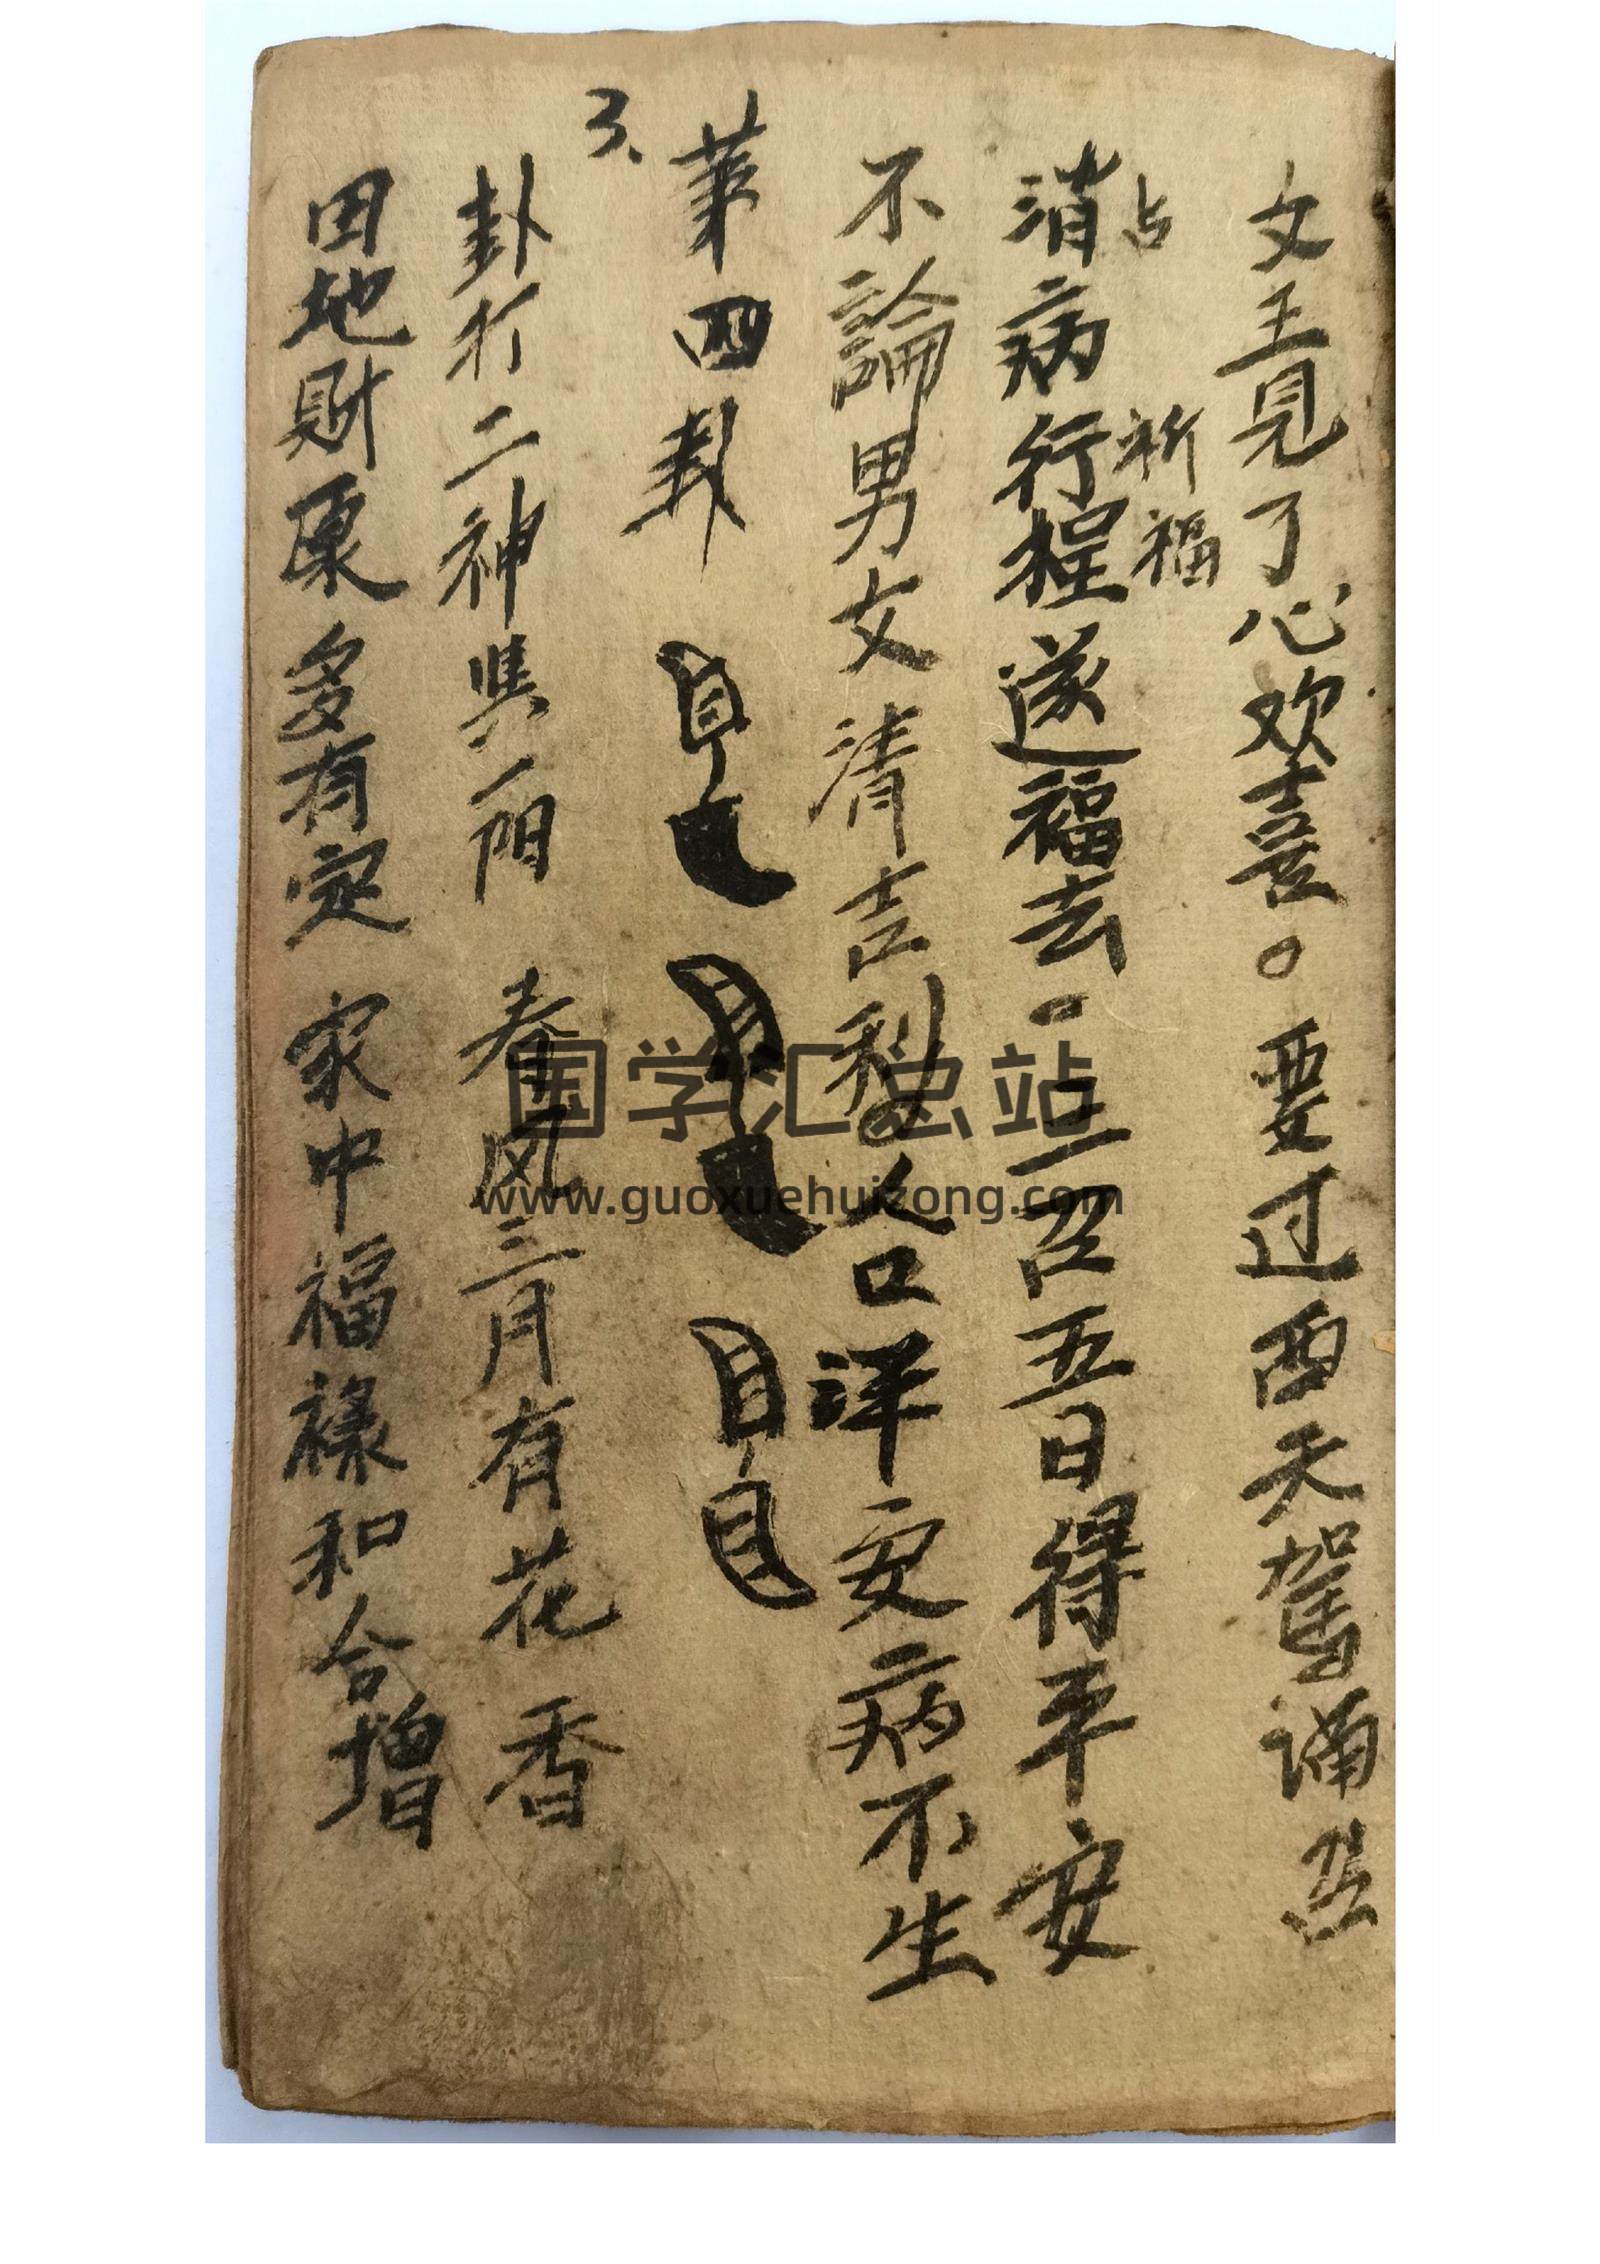 文王見了心欢喜。要过西天駕誦
占 祈福
消病行程遂福去。三召五日得平安
不論男女清吉利。人口洋安病不生
第四卦
3、
卦打二神與一阳 春风三月有花香
田地財原多有定 家中福祿和合增
国学汇总站
www.guoxuehuizong.com